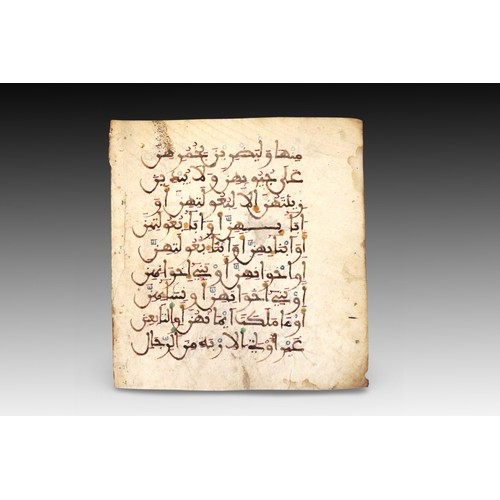 منها وليضربن بخمرهن
على جيوبهن ولا يبدين
زينتهن الا لبعولتهن أو
ابايهن أو ابا بعولتهن
أو ابنايهن أو ابنا بعولتهن
أو اخوانهن أو بني اخوانهن
أو بني اخوتهن أو نسايهن
أو ما ملكت ايمانهن أو التابعين
غير أولي الاربة من الرجال